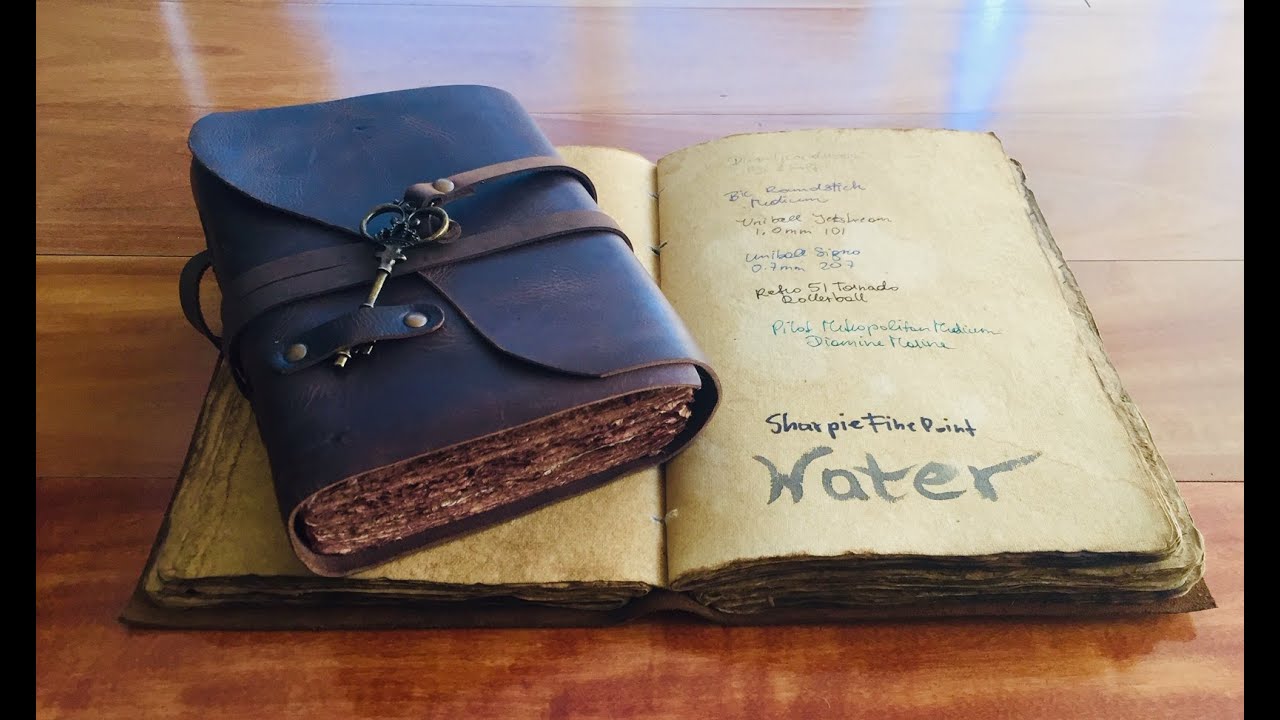 Bic Roundstick
Medium
Uniball Jetstream
1.0mm 101
Uniball Signo
0.7mm 207
Retro 51 Tornado
Rollerball
Pilot Metropolitan Medium
Diamine Marine
Sharpie Fine Point
Water